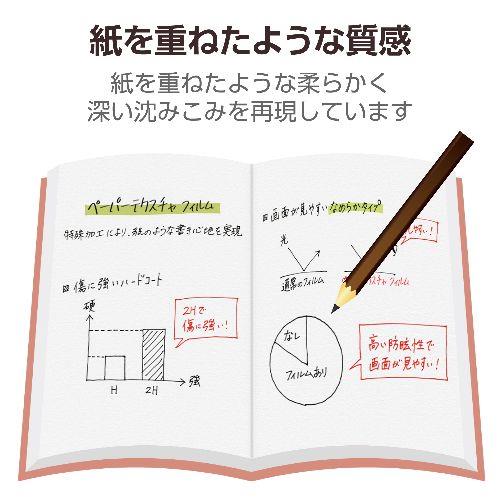 紙を重ねたような質感
紙を重ねたような柔らかく
深い沈みこみを再現しています
ペーパーテクスチャフィルム
特殊加工により、紙のような書き心地を実現
傷に強いハードコート
硬
2Hで
傷に強い!
H
2H
強
画面が見やすいなめらかタイプ
光
通常のフィルム
スチャフィルム
やすい!
なし
フィルムあり
高い防眩性で
画面が見やすい!